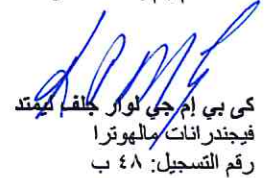 كي بي إم جي لوار جلف ليمتد
فيجندرانات مالهوترا
رقم التسجيل: ٤٨ ب